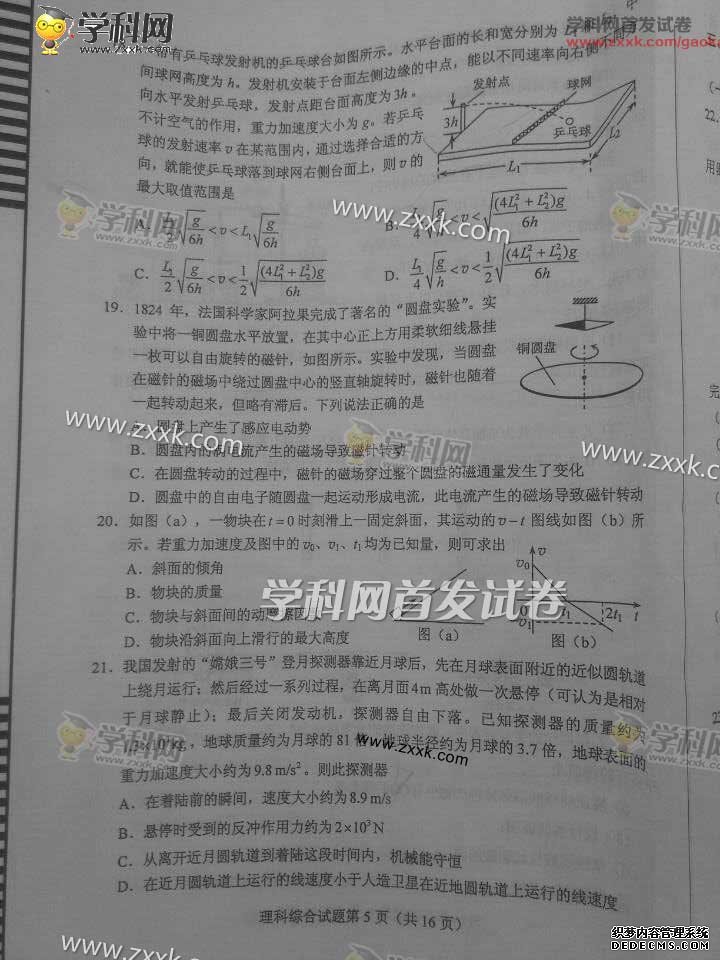 学科网首发试卷
www.zxxk.com/gaok
学科网
www.zxxk.com
带有乒乓球发射机的乒乓球台如图所示。水平台面的长和宽分别为 L₁
间球网高度为 h。发射机安装于台面左侧边缘的中点，能以不同速率向右侧
向水平发射乒乓球，发射点距台面高度为 3h。
不计空气的作用，重力加速度大小为 g。若乒乓
球的发射速率 v 在某范围内，通过选择合适的方
向，就能使乒乓球落到球网右侧台面上，则 v 的
最大取值范围是
发射点
球网
3h
乒乓球
L₁
L₂
A. /2 √(g/6h) < v < L₁√(g/6h)
B. L₁/4 √(g/h) < v < √((4L₁²+L₂²)g/6h)
C. L₁/2 √(g/6h) < v < 1/2 √((4L₁²+L₂²)g/6h)
D. L₁/4 √(g/h) < v < 1/2 √((4L₁²+L₂²)g/6h)
19. 1824 年，法国科学家阿拉果完成了著名的“圆盘实验”。实
验中将一铜圆盘水平放置，在其中心正上方用柔软细线悬挂
一枚可以自由旋转的磁针，如图所示。实验中发现，当圆盘
在磁针的磁场中绕过圆盘中心的竖直轴旋转时，磁针也随着
一起转动起来，但略有滞后。下列说法正确的是
铜圆盘
A. 圆盘上产生了感应电动势
B. 圆盘内的涡电流产生的磁场导致磁针转动
C. 在圆盘转动的过程中，磁针的磁场穿过整个圆盘的磁通量发生了变化
D. 圆盘中的自由电子随圆盘一起运动形成电流，此电流产生的磁场导致磁针转动
www.zxxk.com
学科网
www.zxxk.com
20. 如图（a），一物块在 t＝0 时刻滑上一固定斜面，其运动的 v－t 图线如图（b）所
示。若重力加速度及图中的 v₀、v₁、t₁ 均为已知量，则可求出
A. 斜面的倾角
B. 物块的质量
C. 物块与斜面间的动摩擦因数
D. 物块沿斜面向上滑行的最大高度
学科网首发试卷
v
v₀
0
v₁
t₁
2t₁
t
图（a）
图（b）
21. 我国发射的“嫦娥三号”登月探测器靠近月球后，先在月球表面附近的近似圆轨道
上绕月运行；然后经过一系列过程，在离月面 4m 高处做一次悬停（可认为是相对
于月球静止）；最后关闭发动机，探测器自由下落。已知探测器的质量约为
1.3×10³kg，地球质量约为月球的 81 倍，地球半径约为月球的 3.7 倍，地球表面的
重力加速度大小约为 9.8 m/s²。则此探测器
A. 在着陆前的瞬间，速度大小约为 8.9 m/s
B. 悬停时受到的反冲作用力约为 2×10³N
C. 从离开近月圆轨道到着陆这段时间内，机械能守恒
D. 在近月圆轨道上运行的线速度小于人造卫星在近地圆轨道上运行的线速度
学科网
www.zxxk.com
理科综合试题第 5 页（共 16 页）
www.zxxk.com
学科网
www.zxxk.com
织梦内容管理系统
DEDECMS.COM
22.